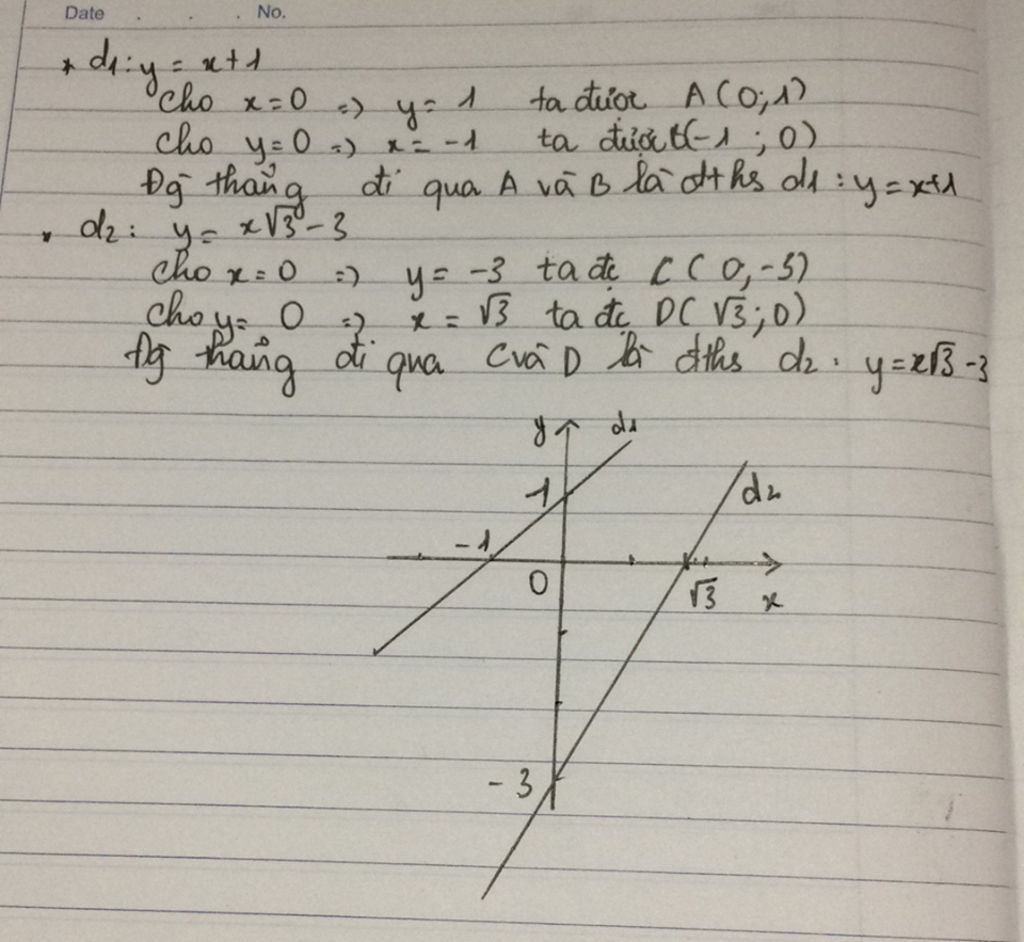 Date . . . No.
* d1: y = x+1
cho x=0 => y= 1 ta được A(0;1)
cho y=0 => x= -1 ta được (-1 ; 0)
Đg thẳng đi qua A và B là đths d1 : y=x+1
* d2: y= x√3-3
cho x=0 => y= -3 ta đc C( 0,-3)
cho y= 0 => x = √3 ta đc D( √3;0)
Đg thẳng đi qua C và D là đths d2 : y=x√3-3
y d1
1 d2
-1
0 √3 x
-3